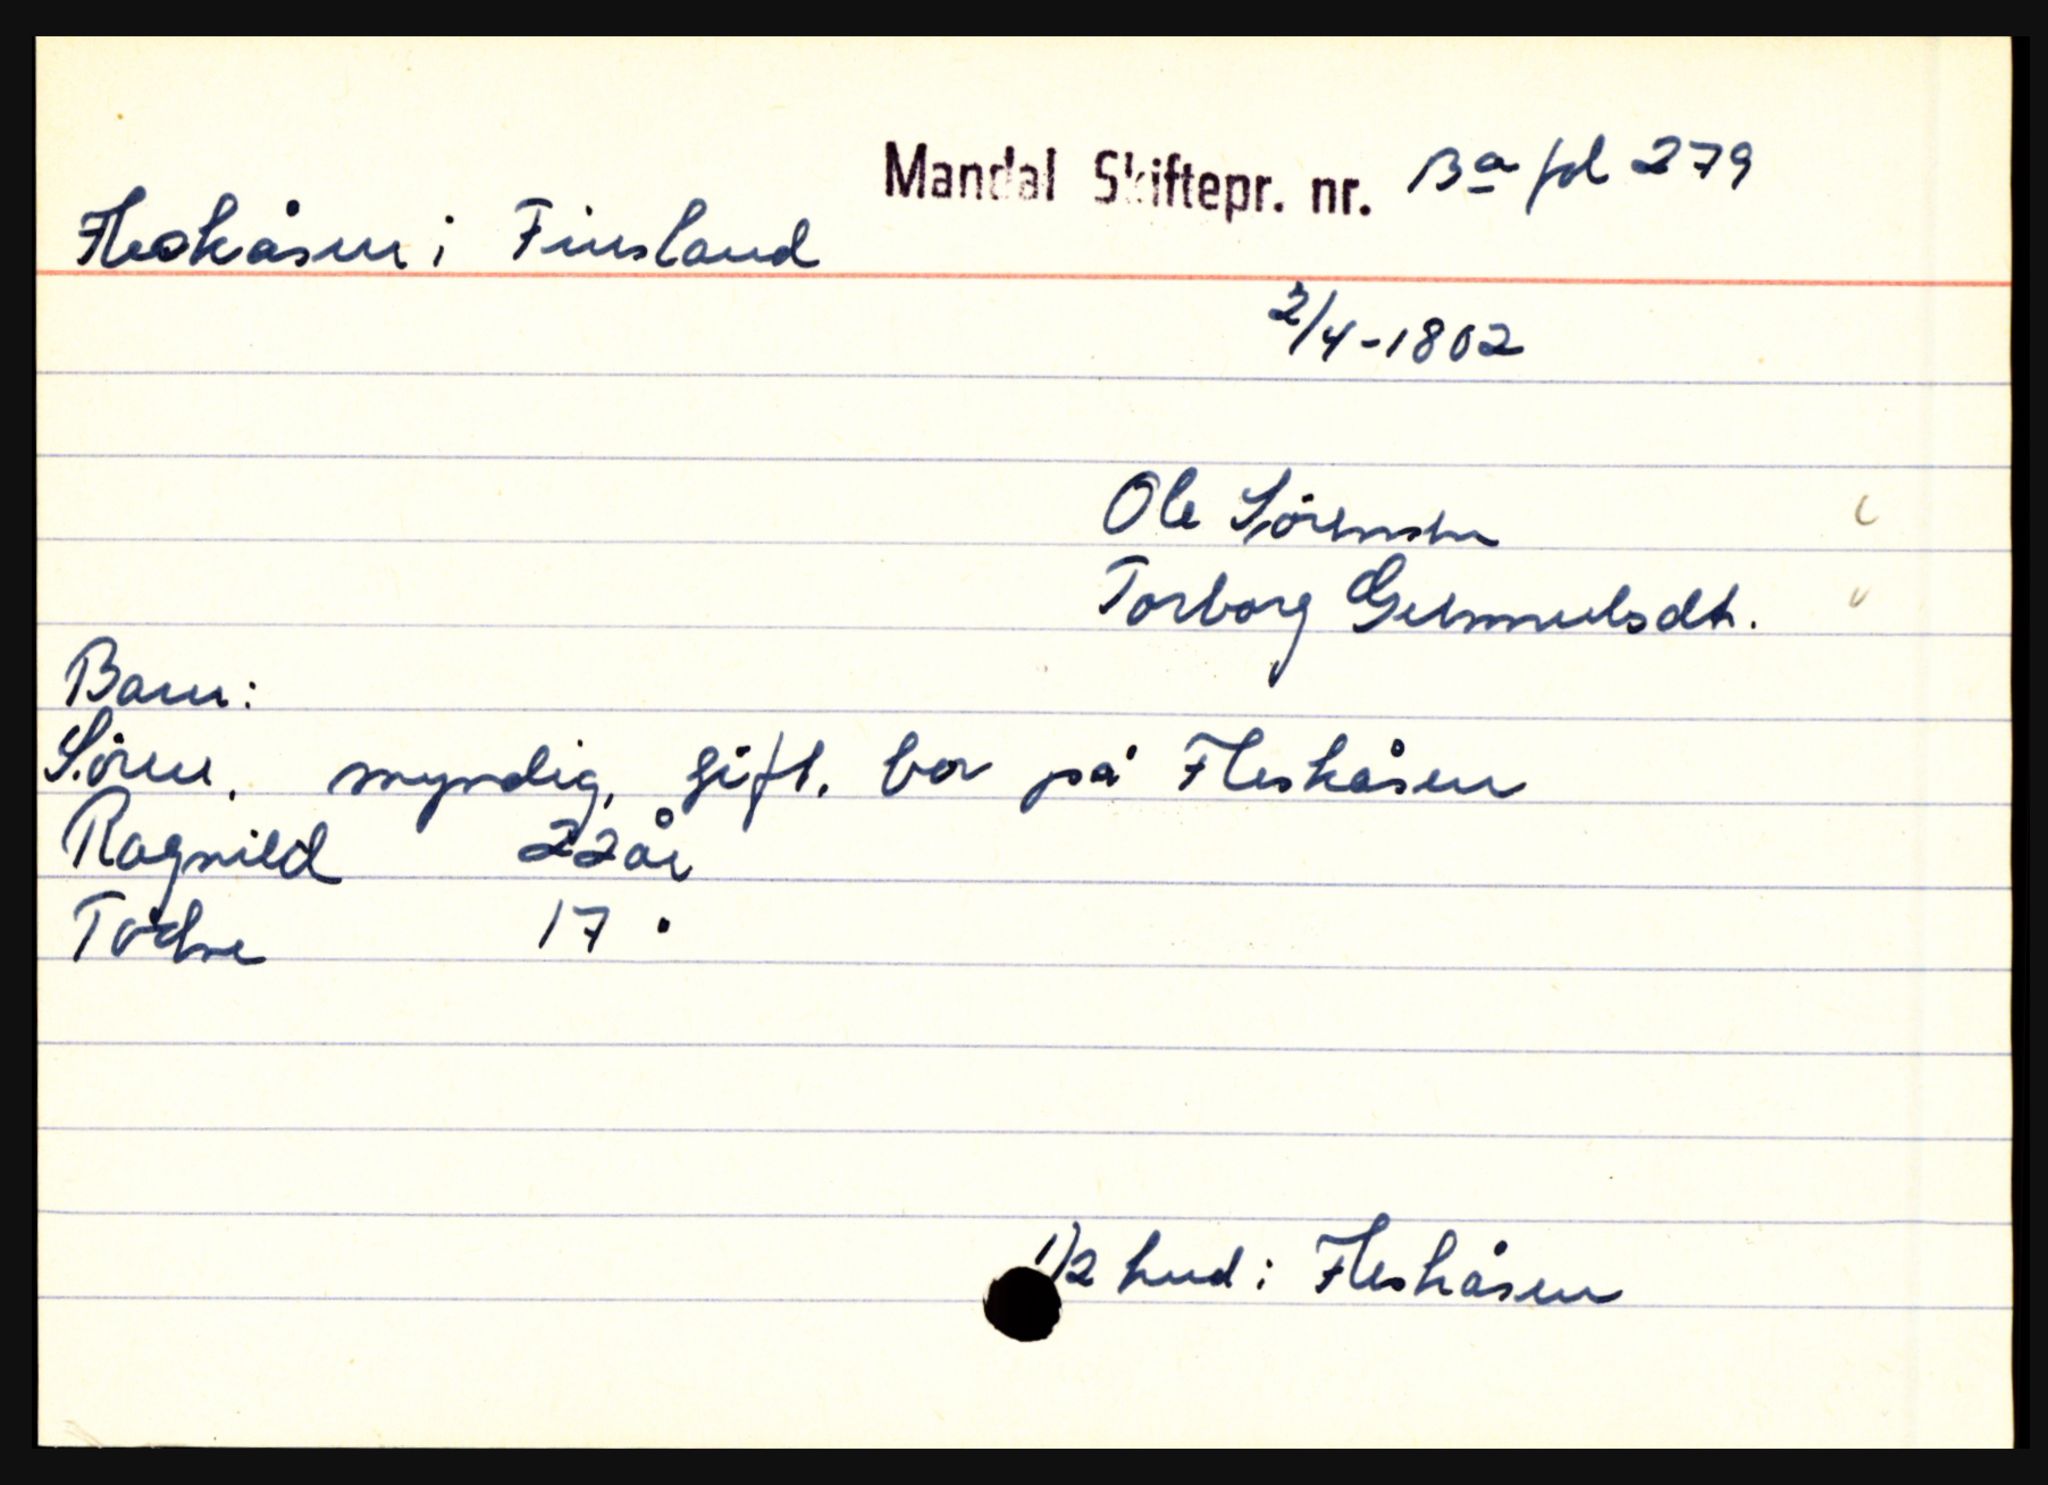 Mandal Skiftepr. nr. Ba fol 279
Fleskåsen i Finsland
2/4-1802
Ole Sörensen
Torborg Gunnulsdt.
Barn:
Sören, myndig, gift. bor på Fleskåsen
Ragnild 22 år
Todne 17 "
1/2 hud i Fleskåsen